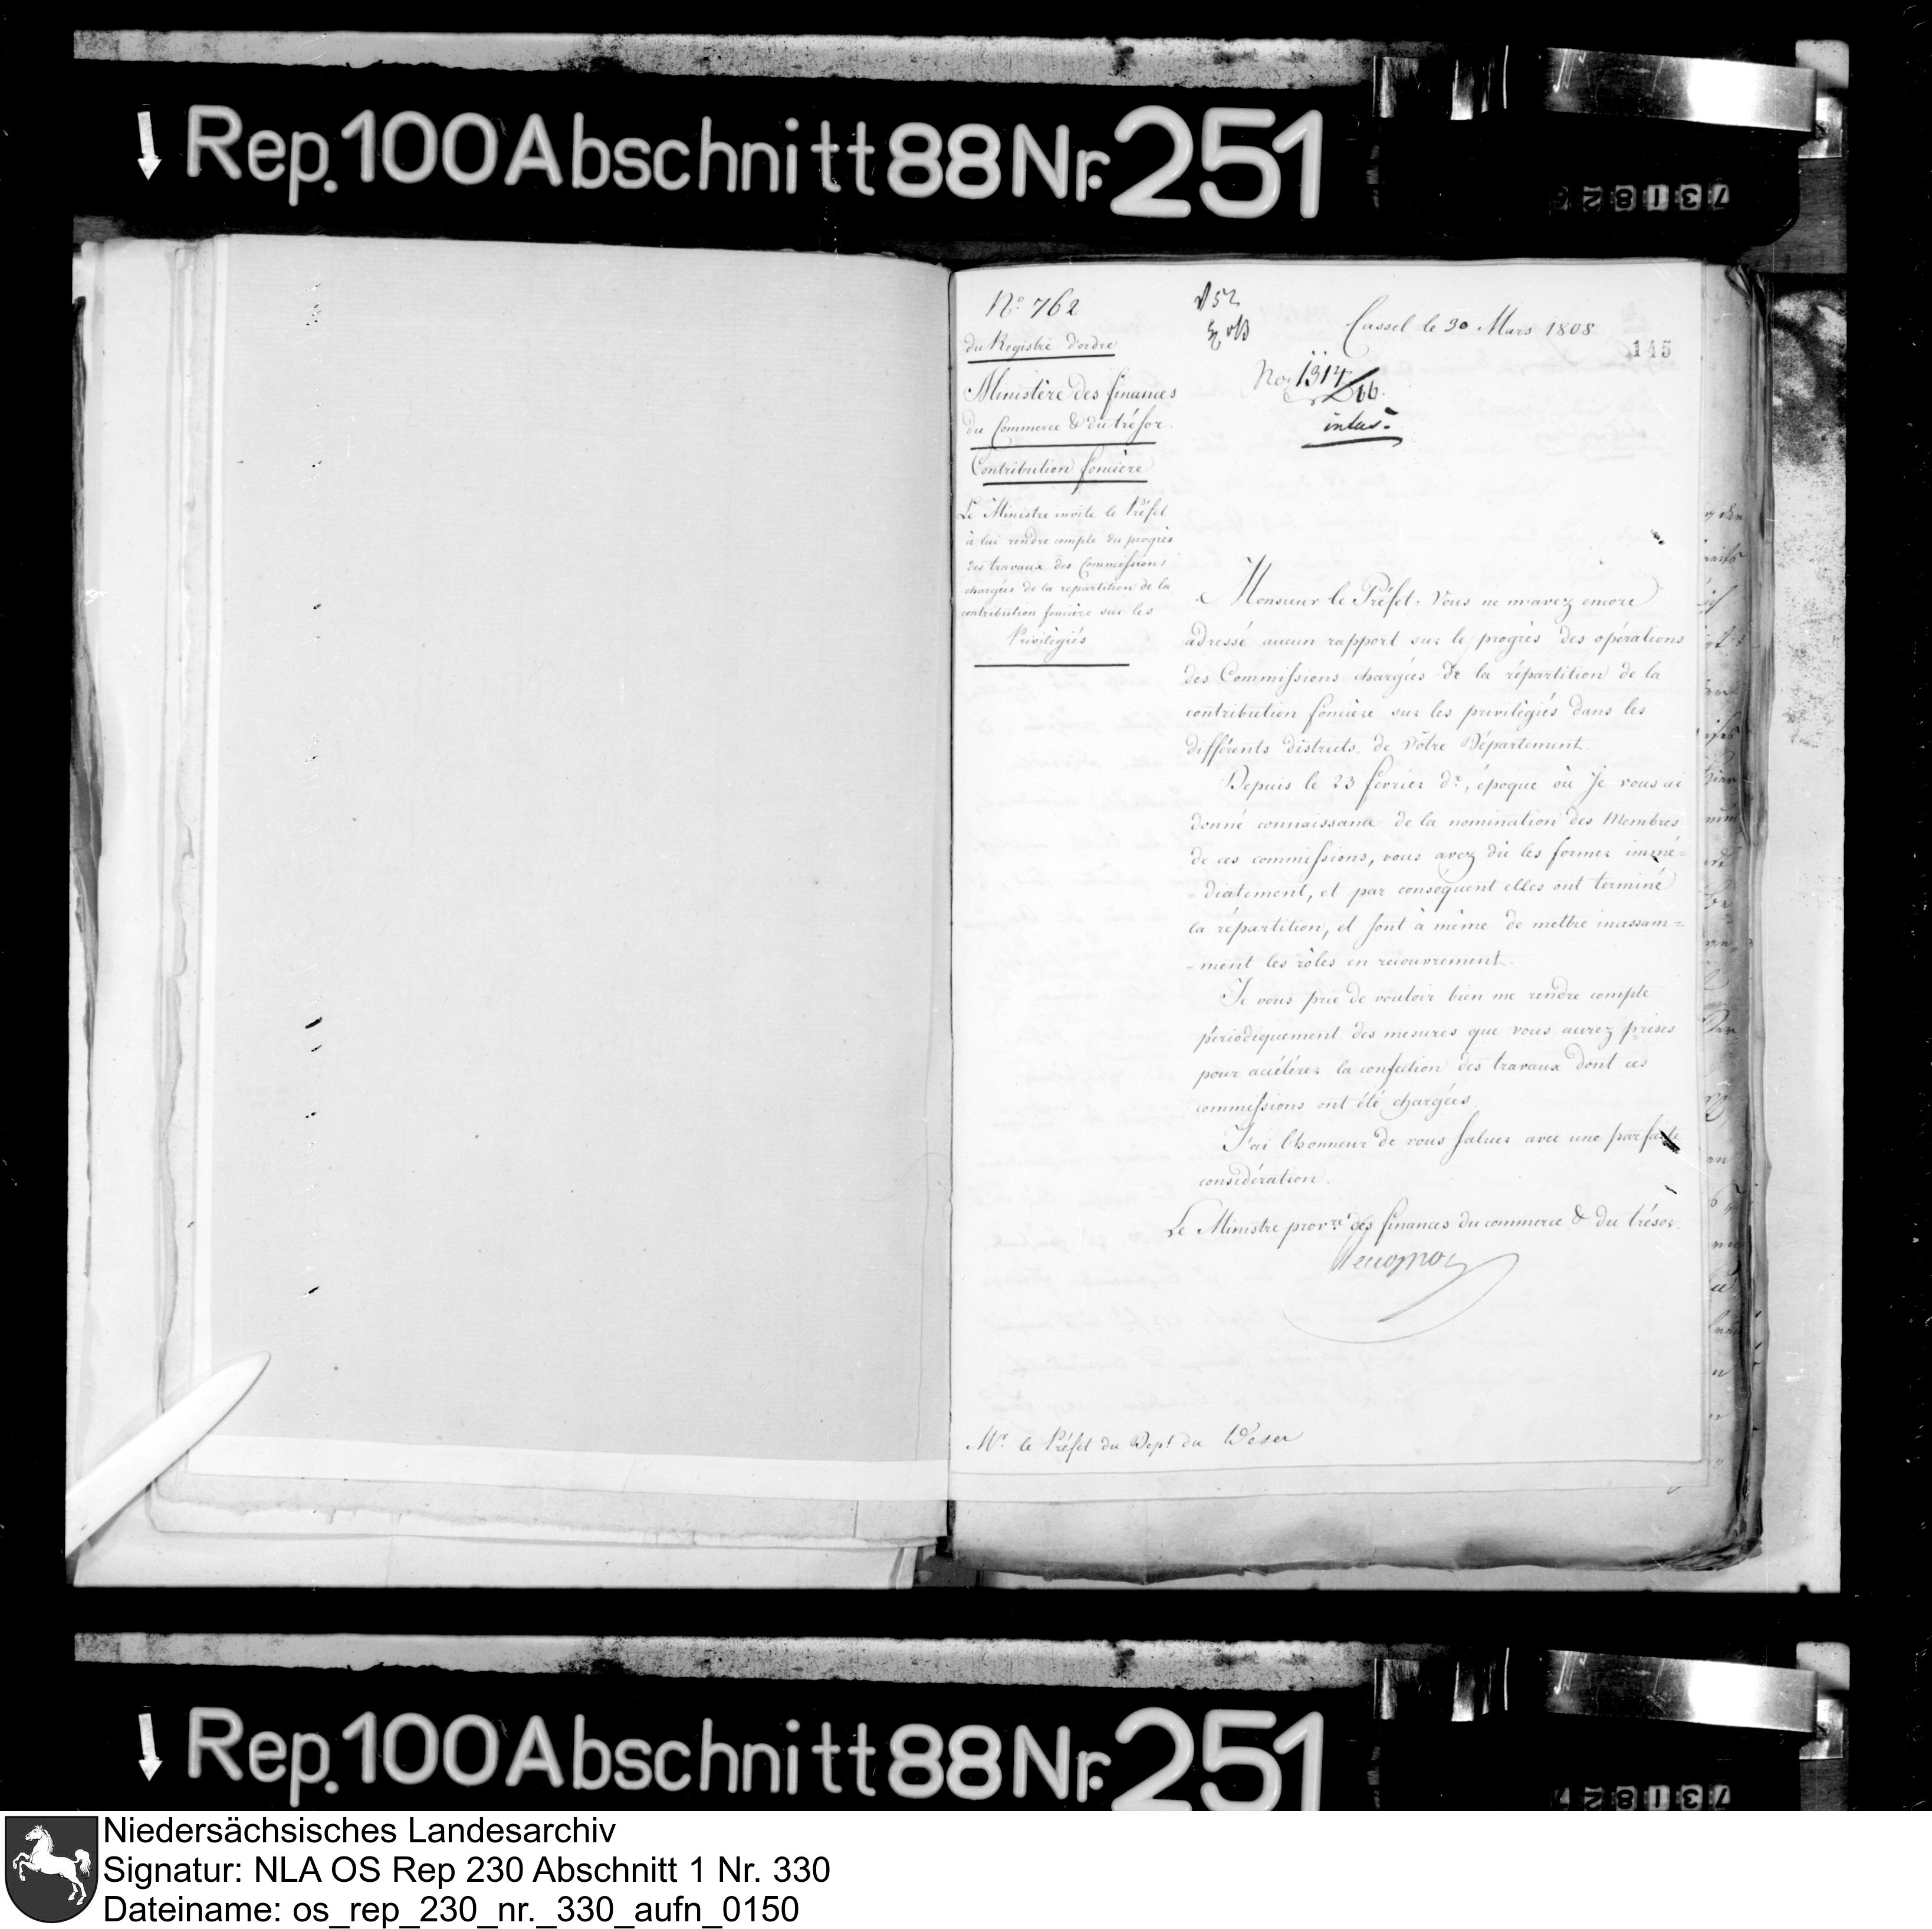 Rep. 100 Abschnitt 88 Nr. 251
No. 762
du Registre d'ordre
Ministère des finances
du Commerce & du trésor.
Contribution foncière
Le Ministre invite le Préfet
à lui rendre compte du progrès
des travaux des Commissions
chargées de la repartition de la
contribution foncière sur les
Privilègiés
Cassel le 30 Mars 1808
145
No. 1314
Monsieur le Préfet, Vous ne m'avez encore
adressé aucun rapport sur le progrès des opérations
des Commissions chargées de la répartition de la
contribution foncière sur les privilègiés dans les
différents districts de Vôtre Département.
Depuis le 23 fevrier dr, époque où Je vous ai
donné connaissance de la nomination des Membres
de ces commissions, vous avez dû les former immé=
=diatement, et par conséquent elles ont terminé
la répartition, et sont à même de mettre incessam=
=ment les rôles en recouvrement.
Je vous prie de vouloir bien me rendre compte
périodiquement des mesures que vous aurez prises
pour accélérer la confection des travaux dont ces
commissions ont été chargées.
J'ai l'honneur de vous saluer avec une parfaite
considération.
Le Ministre provre des finances du commerce & du trésor.
Mr. le Préfet du Dept. du Weser
Rep. 100 Abschnitt 88 Nr. 251
Niedersächsisches Landesarchiv
Signatur: NLA OS Rep 230 Abschnitt 1 Nr. 330
Dateiname: os_rep_230_nr._330_aufn_0150